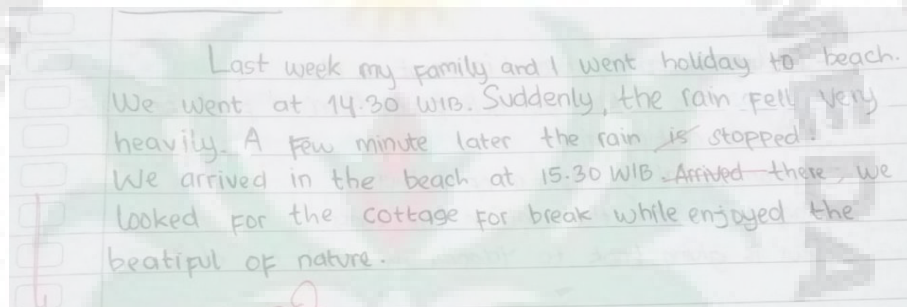 Last week my family and I went holiday to beach.
We went at 14.30 WIB. Suddenly, the rain fell very
heavily. A few minute later the rain is stopped.
We arrived in the beach at 15.30 WIB. Arrived there, we
looked for the cottage for break while enjoyed the
beatiful of nature.